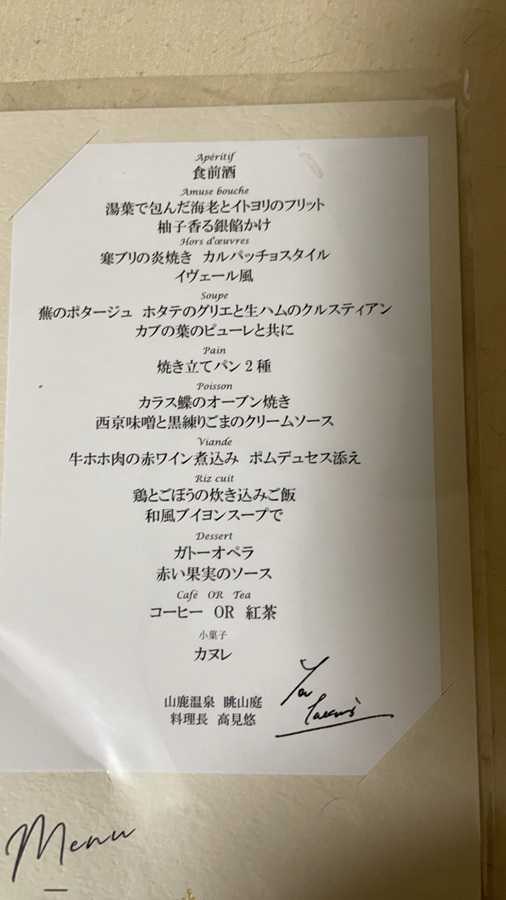 Apéritif
食前酒
Amuse bouche
湯葉で包んだ海老とイトヨリのフリット
柚子香る銀餡かけ
Hors d'œuvres
寒ブリの炎焼き カルパッチョスタイル
イヴェール風
Soupe
蕪のポタージュ ホタテのグリエと生ハムのクルスティアン
カブの葉のピューレと共に
Pain
焼き立てパン2種
Poisson
カラス鰈のオーブン焼き
西京味噌と黒練りごまのクリームソース
Viande
牛ホホ肉の赤ワイン煮込み ポムデュセス添え
Riz cuit
鶏とごぼうの炊き込みご飯
和風ブイヨンスープで
Dessert
ガトーオペラ
赤い果実のソース
Café OR Tea
コーヒー OR 紅茶
小菓子
カヌレ
山鹿温泉 眺山庭
料理長 高見悠
Menu